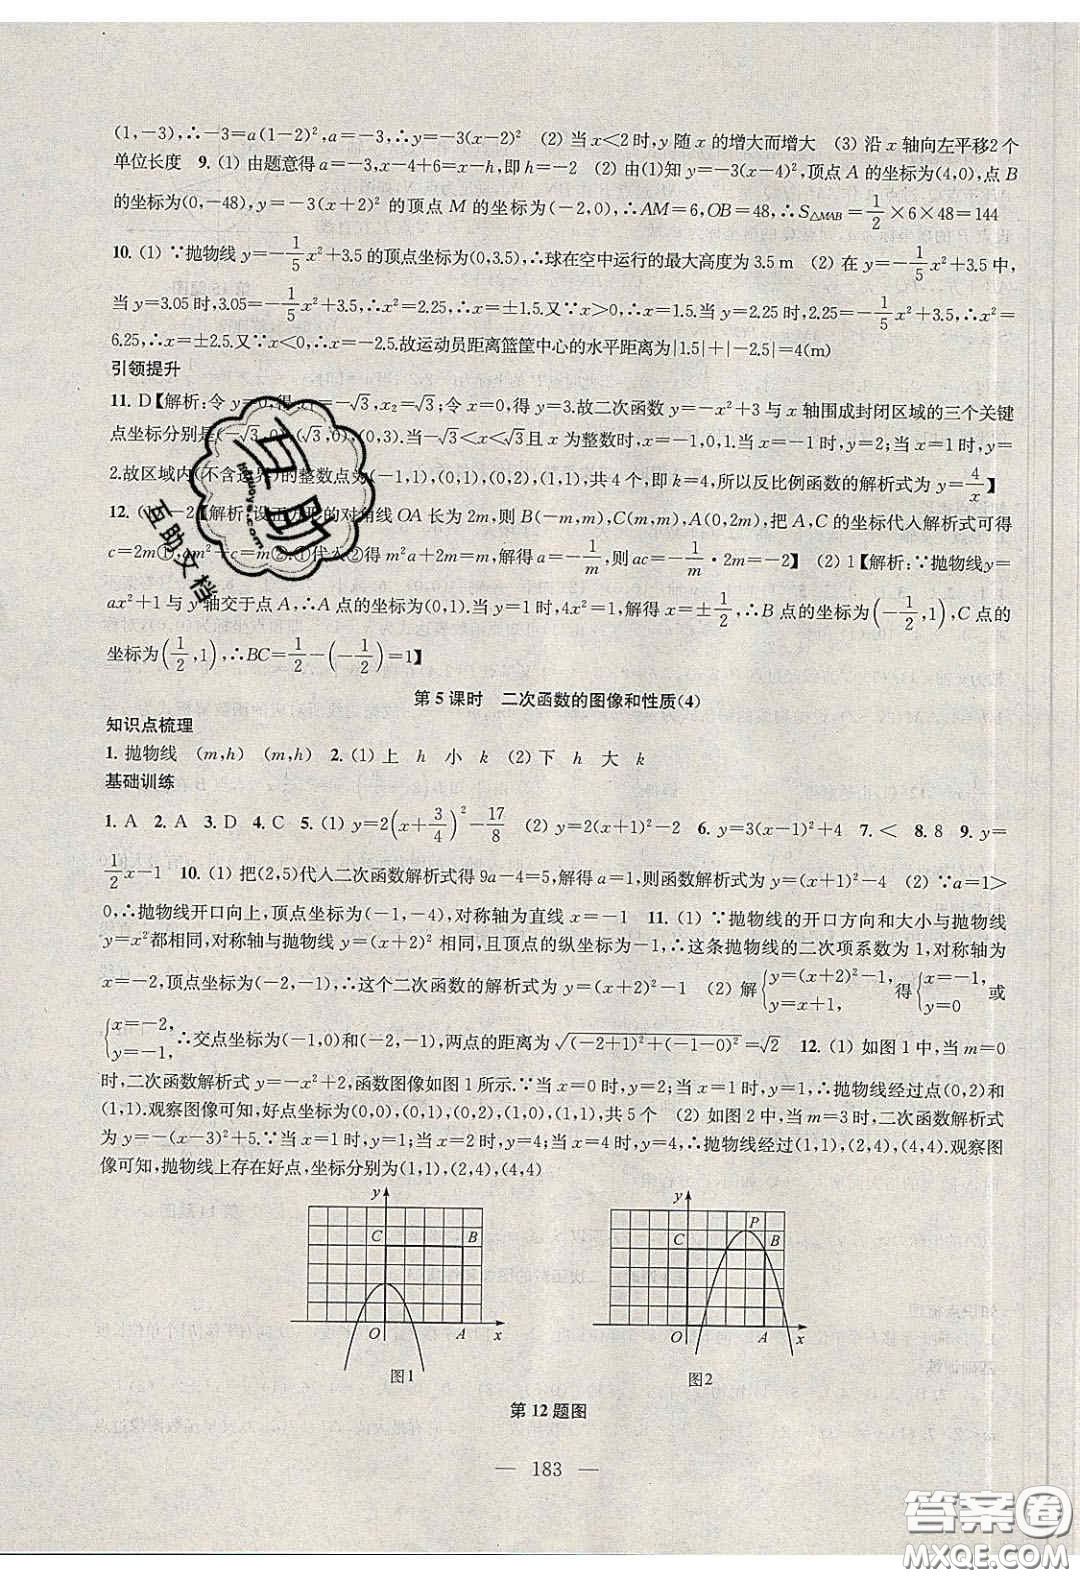 (1,-3),∴-3=a(1-2)²,a=-3,∴y=-3(x-2)² (2) 当x<2时,y随x的增大而增大 (3) 沿x轴向左平移2个
单位长度 9. (1) 由题意得a=-3,x-4+6=x-h,即h=-2 (2) 由(1)知y=-3(x-4)²,顶点A的坐标为(4,0),点B
的坐标为(0,-48),y=-3(x+2)²的顶点M的坐标为(-2,0),∴AM=6,OB=48,∴S△MAB=1/2×6×48=144
10. (1) ∵抛物线y=-1/5x²+3.5的顶点坐标为(0,3.5),∴球在空中运行的最大高度为3.5 m (2) 在y=-1/5x²+3.5中,
当y=3.05时,3.05=-1/5x²+3.5,∴x²=2.25,∴x=±1.5.又∵x>0,∴x=1.5.当y=2.25时,2.25=-1/5x²+3.5,∴x²=
6.25,∴x=±2.5.又∵x<0,∴x=-2.5.故运动员距离篮筐中心的水平距离为|1.5|+|-2.5|=4(m)
引领提升
11. D【解析:令y=0,得x₁=-√3,x₂=√3;令x=0,得y=3.故二次函数y=-x²+3与x轴围成封闭区域的三个关键
点坐标分别是(-√3,0),(√3,0),(0,3).当-√3<x<√3且x为整数时,x=-1,0,1.当x=-1时,y=2;当x=1时,y=
2.故区域内(不含边界)的整数点为(-1,1),(0,1),(0,2),(1,1),共4个,即k=4,所以反比例函数的解析式为y=4/x】
12. (1) -2【解析:设正方形的对角线OA长为2m,则B(-m,m),C(m,m),A(0,2m),把A,C的坐标代入解析式可得
c=2m①,am²+c=m②.①代入②得m²a+2m=m,解得a=-1/m,则ac=-1/m·2m=-2】 (2) 1【解析:∵抛物线y=
ax²+1与y轴交于点A,∴A点的坐标为(0,1).当y=1时,4x²=1,解得x=±1/2,∴B点的坐标为(-1/2,1),C点的
坐标为(1/2,1),∴BC=1/2-(-1/2)=1】
第5课时 二次函数的图像和性质(4)
知识点梳理
1. 抛物线 (m,h) (m,h) 2. (1) 上 h 小 k (2) 下 h 大 k
基础训练
1. A 2. A 3. D 4. C 5. (1) y=2(x+3/4)²-17/8 (2) y=2(x+1)²-2 6. y=3(x-1)²+4 7. < 8. 8 9. y=
1/2x-1 10. (1) 把(2,5)代入二次函数解析式得9a-4=5,解得a=1,则函数解析式为y=(x+1)²-4 (2) ∵a=1>
0,∴抛物线开口向上,顶点坐标为(-1,-4),对称轴为直线x=-1 11. (1) ∵抛物线的开口方向和大小与抛物线
y=x²都相同,对称轴与抛物线y=(x+2)²相同,且顶点的纵坐标为-1,∴这条抛物线的二次项系数为1,对称轴为
x=-2,顶点坐标为(-2,-1),∴这个二次函数的解析式为y=(x+2)²-1 (2) 解{y=(x+2)²-1, y=x+1, 得{x=-1, y=0 或
{x=-2, y=-1, ∴交点坐标为(-1,0)和(-2,-1),两点的距离为√((-2+1)²+(-1-0)²)=√2 12. (1) 如图1中,当m=0
时,二次函数解析式y=-x²+2,函数图像如图1所示.∵当x=0时,y=2;当x=1时,y=1,∴抛物线经过点(0,2)和
(1,1).观察图像可知,好点坐标为(0,0),(0,1),(0,2),(1,0),(1,1),共5个 (2) 如图2中,当m=3时,二次函数解析式
为y=-(x-3)²+5.∵当x=1时,y=1;当x=2时,y=4;当x=4时,y=4,∴抛物线经过(1,1),(2,4),(4,4).观察图
像可知,抛物线上存在好点,坐标分别为(1,1),(2,4),(4,4)
y
C B
O A x
图1
y
P
C B
O A x
图2
第12题图
— 183 —
互助
互助文档
答案圈
MXQE.COM